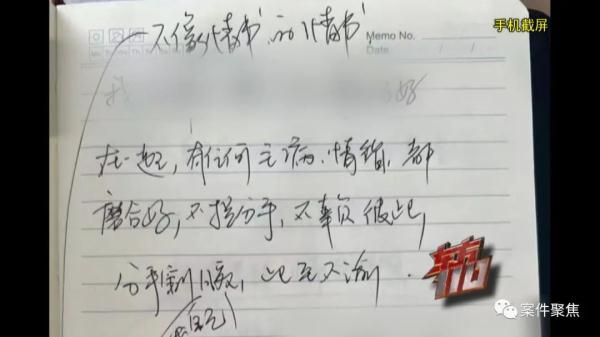 手机截屏
一不像'情书'的'情书'
Memo No.
Date
我
好
在一起，有任何毛病、情绪，都
磨合好，不提分手，不辜负彼此，
分手割腿，此至不渝．
案件聚焦